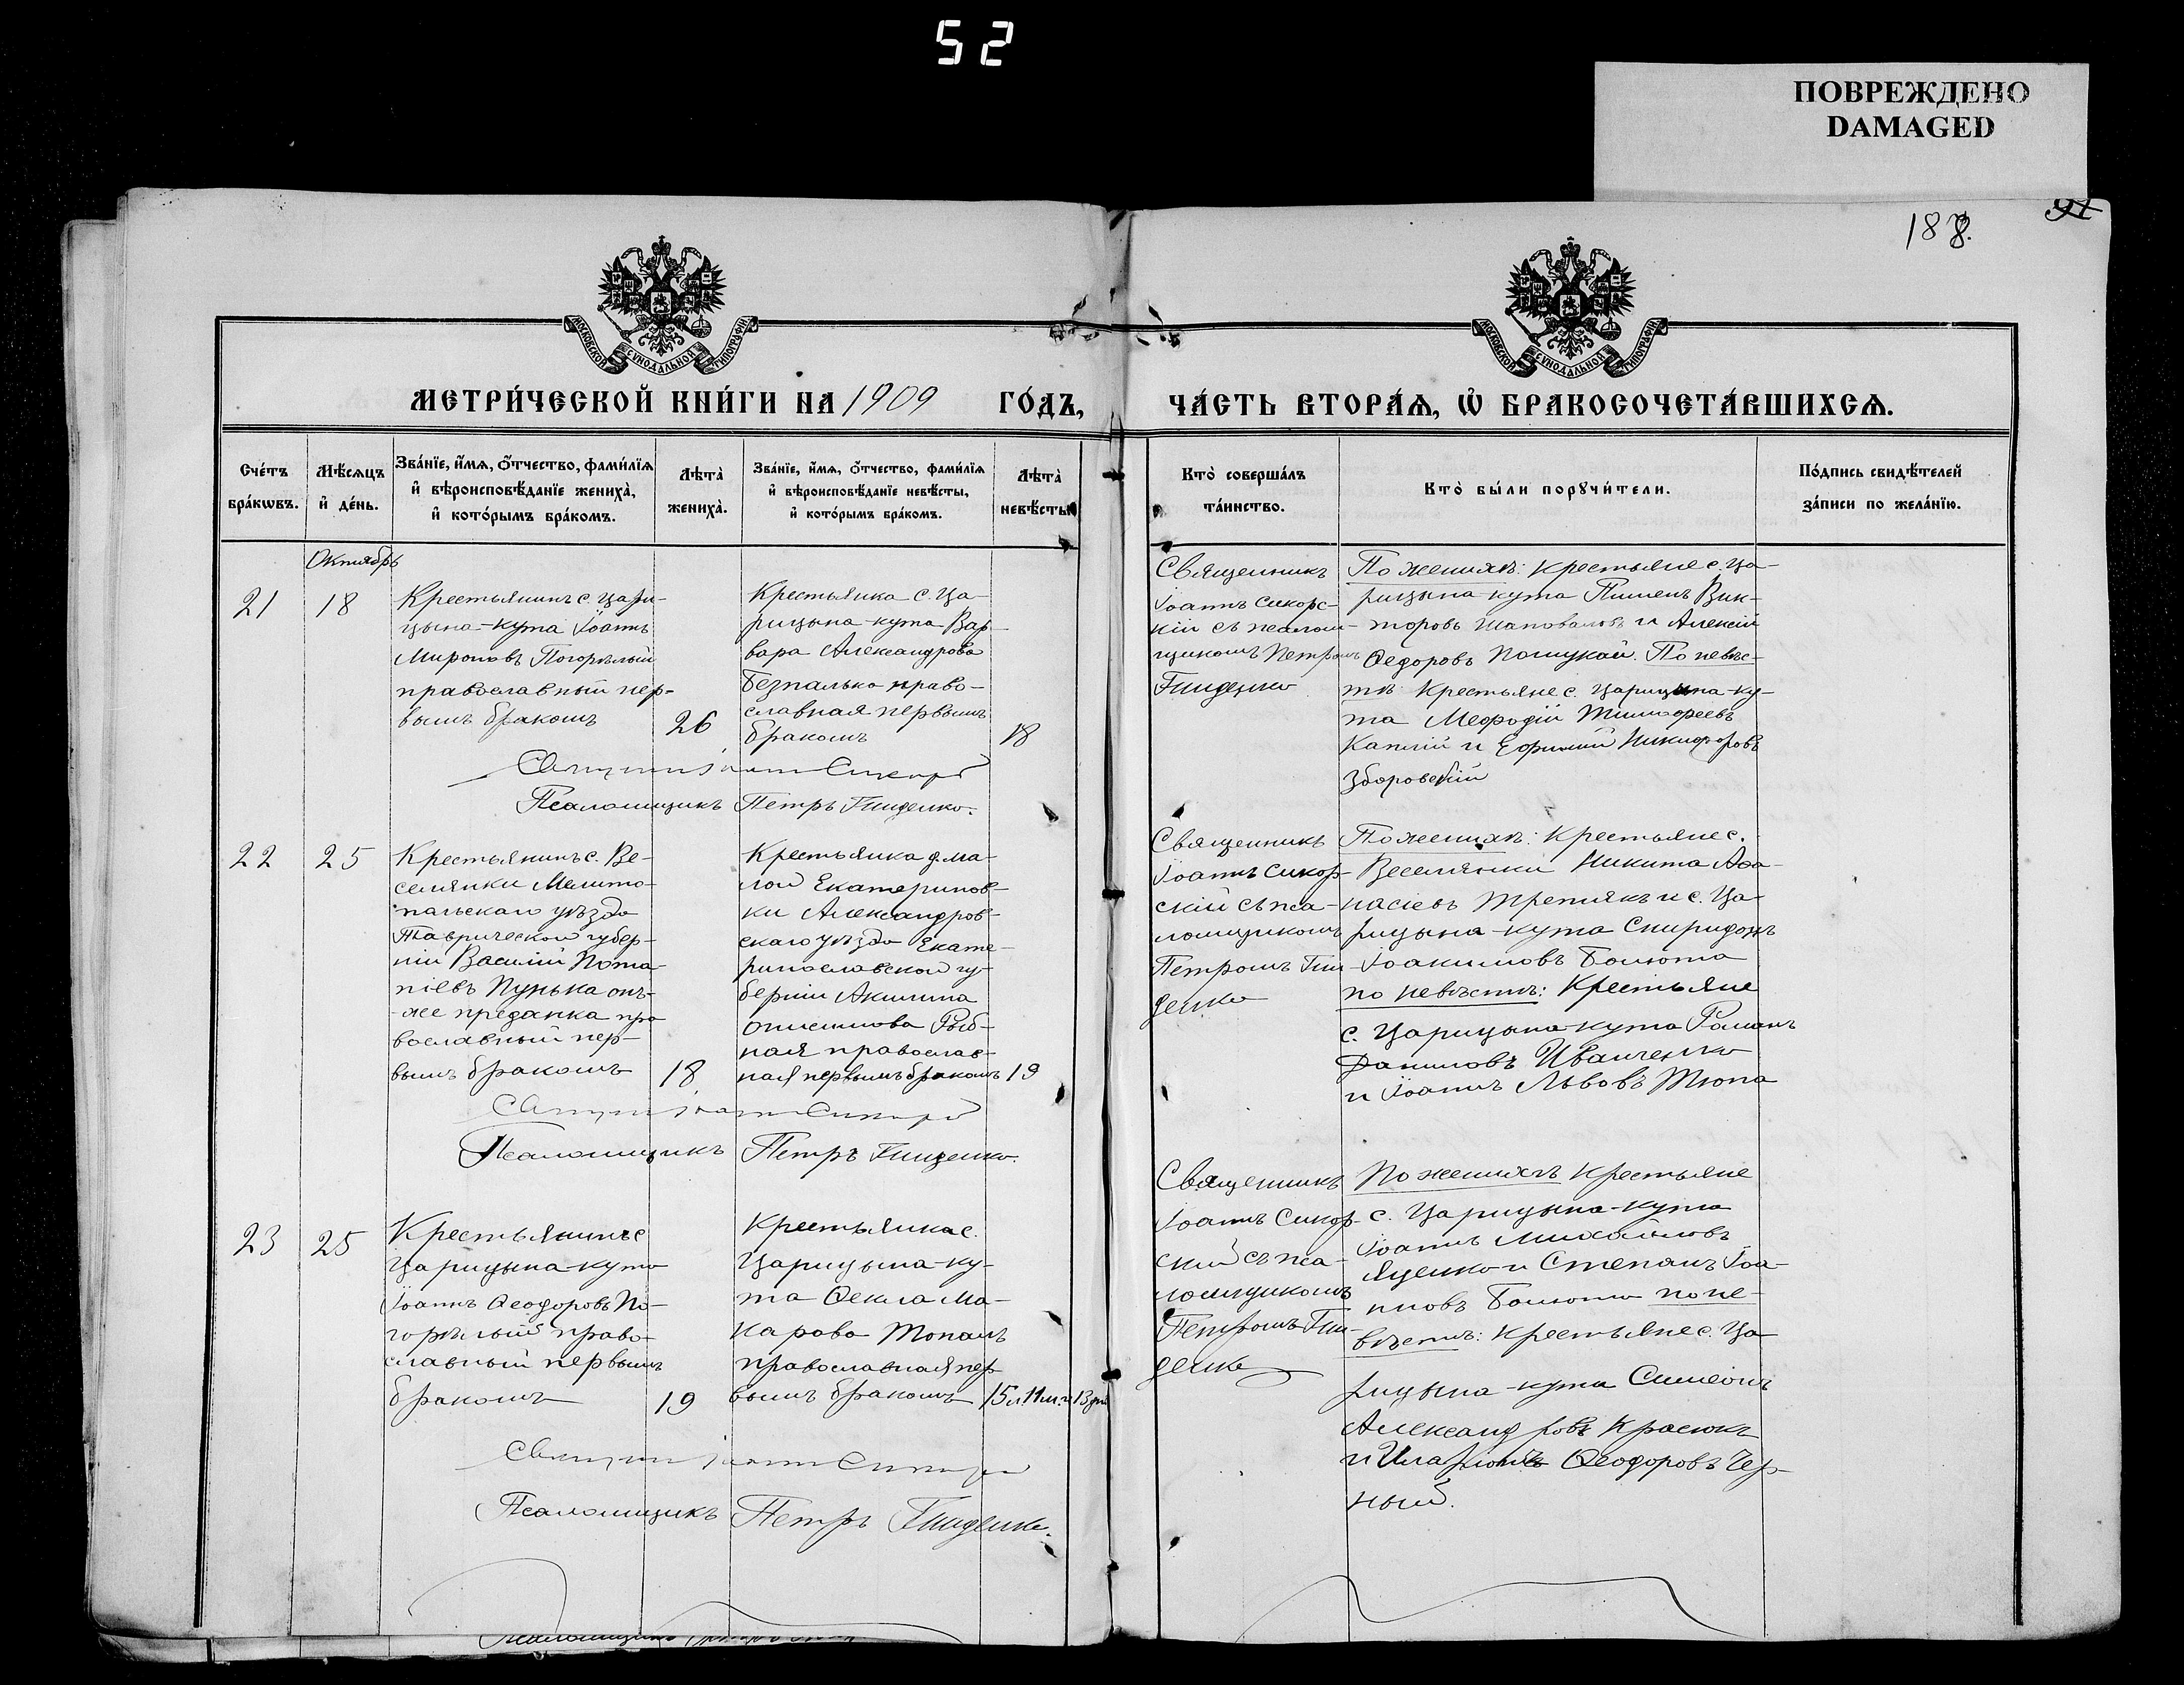 52
ПОВРЕЖДЕНО
DAMAGED
188.
МОСКОВСКОЙ СѴНОДАЛЬНОЙ ТИПОГРАФІИ
МОСКОВСКОЙ СѴНОДАЛЬНОЙ ТИПОГРАФІИ
МЕТРИ́ЧЕСКОЙ КНИ́ГИ НА 1909 ГО́ДЪ,
ЧА́СТЬ ВТОРА́Ѧ, Ѽ БРАКОСОЧЕТА́ВШИХСѦ.
Сче́тъ
бра́кѡвъ.
Мѣ́сѧцъ
и҆ де́нь.
Зва́нїе, и҆́мѧ, ѻ҆́тчество, фами́лїѧ
и҆ вѣроисповѣ́данїе жениха̀,
и҆ кото́рымъ бра́комъ.
Лѣта̀
жениха̀.
Зва́нїе, и҆́мѧ, ѻ҆́тчество, фами́лїѧ
и҆ вѣроисповѣ́данїе невѣ́сты,
и҆ кото́рымъ бра́комъ.
Лѣта̀
невѣ́сты.
Кто̀ соверша́лъ
та́инство.
Кто̀ бы́ли порꙋчи́тели.
По́дпись свидѣ́телей
за́писи по жела́нїю.
Октябрь
21
18
Крестьянинъ с. Цари-
цына-кута Іоаннъ
Мироновъ Погорѣлый
православный пер-
вымъ бракомъ
26
Крестьянка с. Ца-
рицына-кута Вар-
вара Александрова
Безпалько право-
славная первымъ
бракомъ
18
Священникъ
Іоаннъ Сикорс-
кій съ псалом-
щикомъ Петромъ
Гниденко
По женихѣ: Крестьяне с. Ца-
рицына-кута Пименъ Вик-
торовъ Шаповаловъ и Алексій
Ѳедоровъ Пошукай. По невѣс-
тѣ: Крестьяне с. Царицына-ку-
та Меѳодій Тимоѳеевъ
Каптій и Ефимій Никифоровъ
Зборовскій
Священникъ Іоаннъ Сикорскій
Псаломщикъ Петръ Гниденко.
22
25
Крестьянинъ с. Ве-
селянки Мелито-
польскаго уѣзда
Таврической губер-
ніи Василій Пота-
піевъ Пунька онъ-
же преданка пра
вославный пер-
вымъ бракомъ
18
Крестьянка д. Ма-
лой Екатеринов-
ки Александров-
скаго уѣзда Екате-
ринославской гу-
берніи Акилина
Онисимова Рыб-
ная православ-
ная первымъ бракомъ
19
Священникъ
Іоаннъ Сикор-
скій съ пса-
ломщикомъ
Петромъ Гни-
денко
По женихѣ: Крестьяне с.
Веселянки Никита Аѳа-
насіевъ Третякъ и с. Ца-
рицына-кута Спиридонъ
Іоакимовъ Болюта
по невѣстѣ: Крестьяне
с. Царицына-кута Романъ
Даниловъ Иванченко
и Іоаннъ Львовъ Тюпа
Священникъ Іоаннъ Сикорскій
Псаломщикъ Петръ Гниденко.
23
25
Крестьянинъ с
Царицына-кута
Іоаннъ Ѳеодоровъ По-
горѣлый право-
славный первымъ
бракомъ
19
Крестьянка с.
Царицына-ку-
та Ѳекла Ма-
карова Топаль
православная пер
вымъ бракомъ
15 л. 11 м. и 13 дн.
Священникъ
Іоаннъ Сикор-
скій съ пса-
ломщикомъ
Петромъ Гни-
денко
По женихѣ Крестьяне
с. Царицына-кута
Іоаннъ Михайловъ
Яценко и Степанъ Іоа-
нновъ Болюта по не-
вѣстѣ: Крестьяне с. Ца
рицына-кута Симеонъ
Александровъ Красюкъ
и Иларіонъ Ѳеодоровъ Чер-
ный.
Священникъ Іоаннъ Сикорскій
Псаломщикъ Петръ Гниденко.